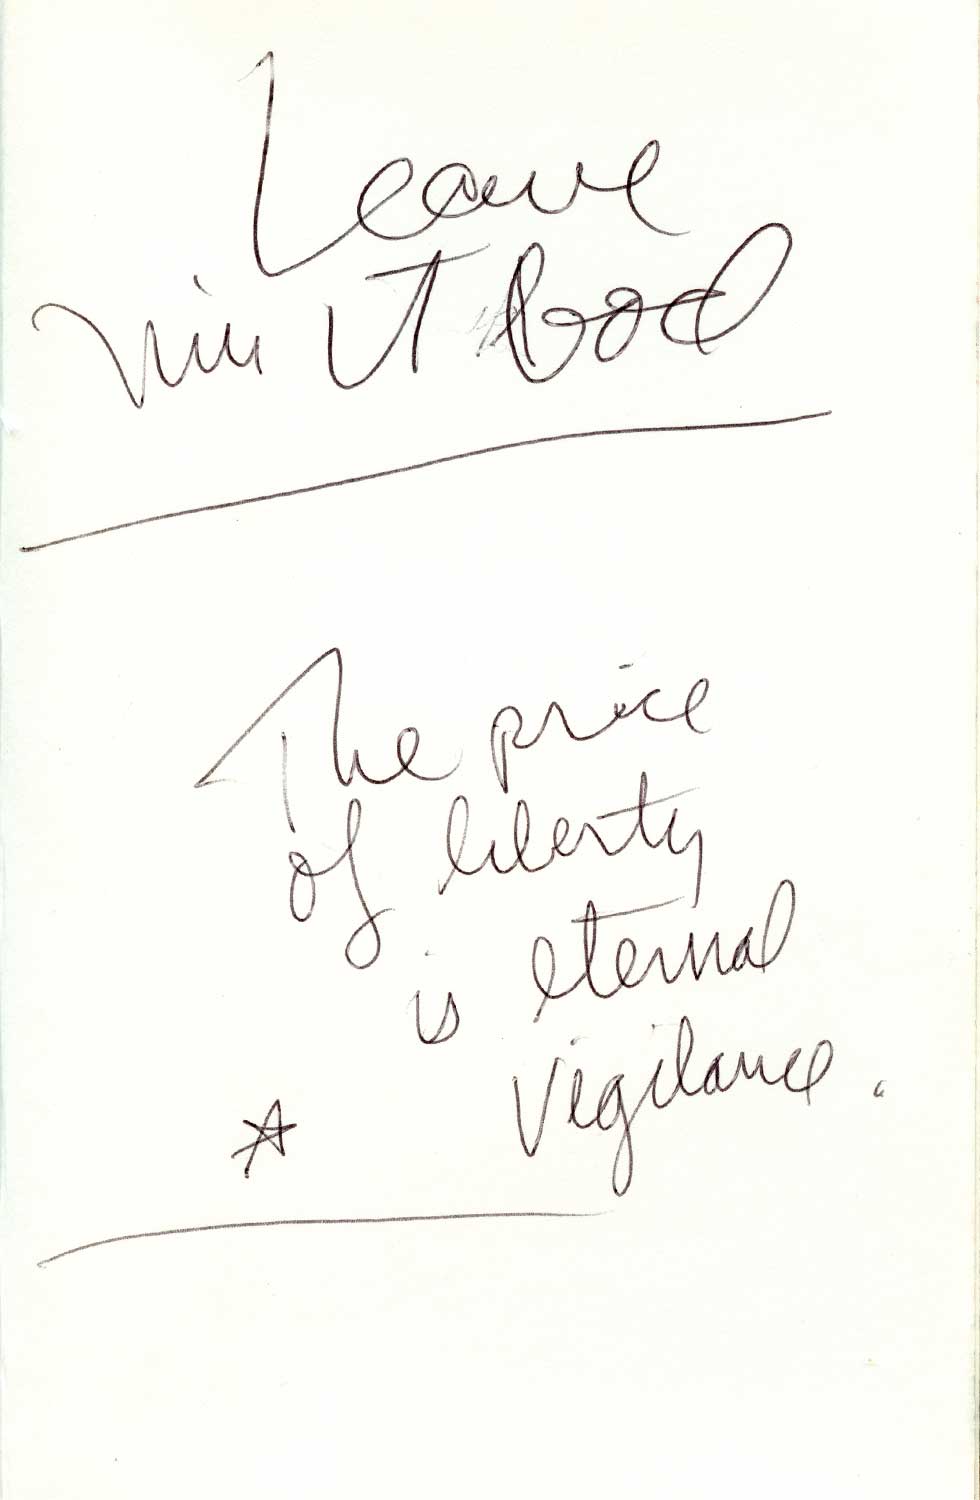 Leave
The price
of liberty
is eternal
vigilance.